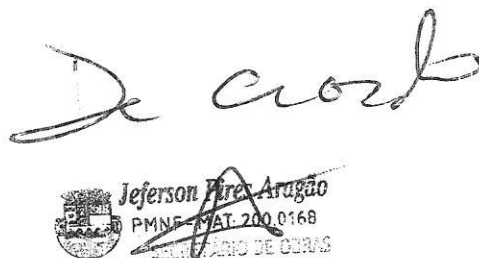 De acordo
Jeferson Pires Aragão
PMNF-MAT 200.0168
SECRETÁRIO DE OBRAS